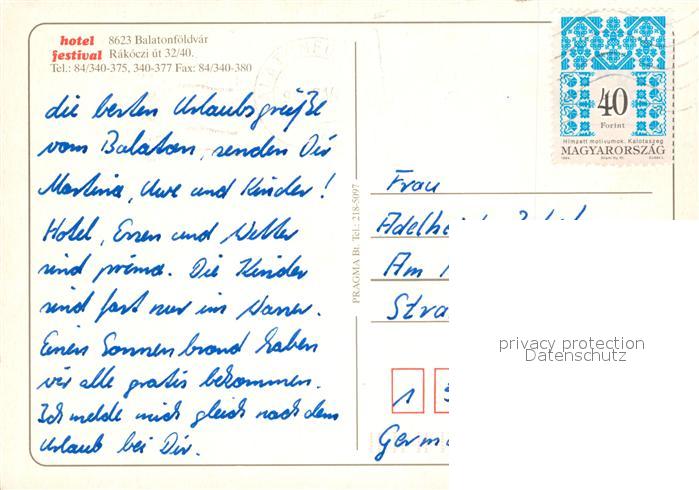 hotel festival
8623 Balatonföldvár
Rákóczi út 32/40.
Tel.: 84/340-375, 340-377 Fax: 84/340-380
die besten Urlaubsgrüße
vom Balaton, senden Dir
Martina, Uwe und Kinder!
Hotel, Essen und Wetter
sind prima. Die Kinder
sind fast nur im Wasser.
Einen Sonnenbrand haben
wir alle gratis bekommen.
Ich melde mich gleich nach dem
Urlaub bei Dir.
PRAGMA Bt. Tel.: 218-5097
40
Forint
Hímzett motívumok, Kalotaszeg
MAGYARORSZÁG
1994
Frau
Am
1
privacy protection
Datenschutz